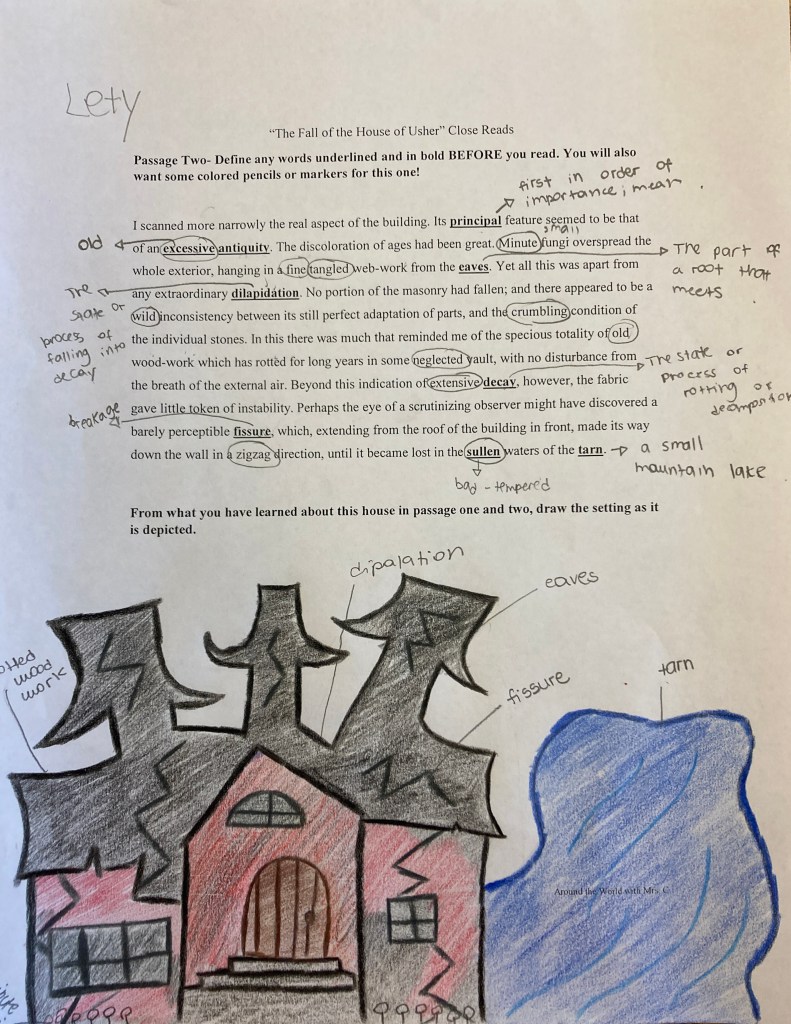 Lety
"The Fall of the House of Usher" Close Reads
Passage Two- Define any words underlined and in bold BEFORE you read. You will also
want some colored pencils or markers for this one!
first in order of
importance; mean.
I scanned more narrowly the real aspect of the building. Its principal feature seemed to be that
small
old
of an excessive antiquity. The discoloration of ages had been great. Minute fungi overspread the
The part of
a root that
meets
whole exterior, hanging in a fine tangled web-work from the eaves. Yet all this was apart from
The
state or
process of
falling into
decay
any extraordinary dilapidation. No portion of the masonry had fallen; and there appeared to be a
wild inconsistency between its still perfect adaptation of parts, and the crumbling condition of
the individual stones. In this there was much that reminded me of the specious totality of old
wood-work which has rotted for long years in some neglected vault, with no disturbance from
The state or
process of
rotting or
the breath of the external air. Beyond this indication of extensive decay, however, the fabric
breakage
gave little token of instability. Perhaps the eye of a scrutinizing observer might have discovered a
barely perceptible fissure, which, extending from the roof of the building in front, made its way
down the wall in a zigzag direction, until it became lost in the sullen waters of the tarn.
a small
mountain lake
bad-tempered
From what you have learned about this house in passage one and two, draw the setting as it
is depicted.
dipalation
eaves
wood
work
fissure
tarn
Around the World with Mrs. C